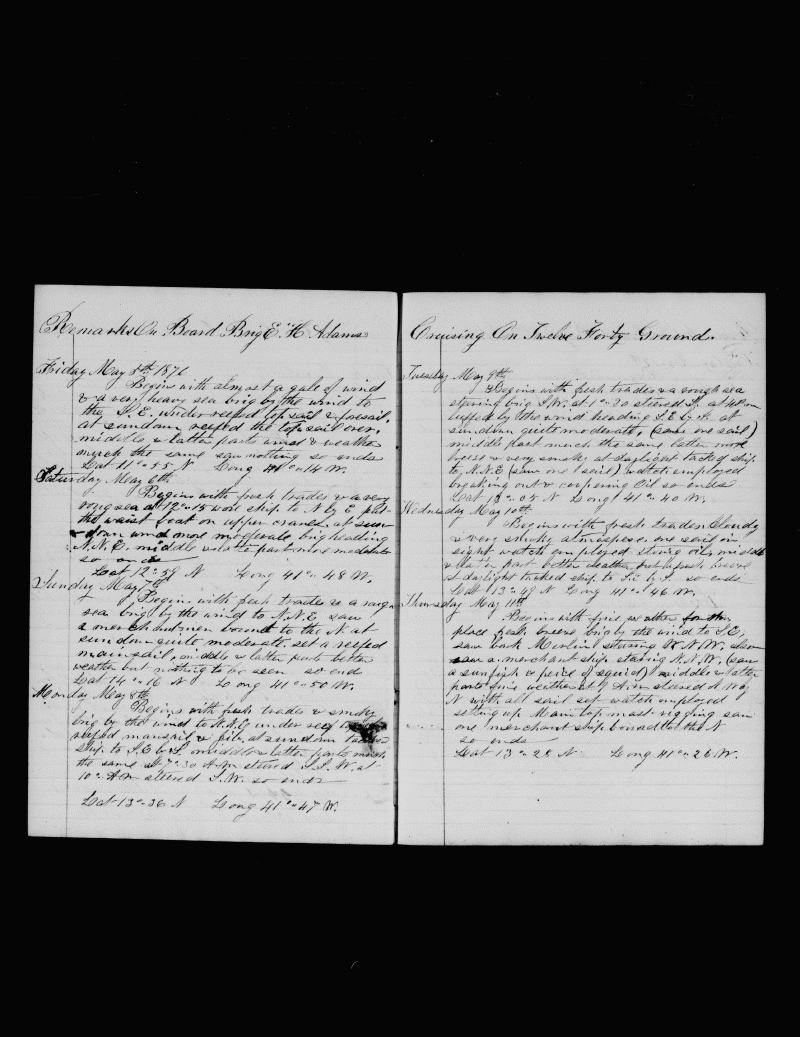 Remarks On Board Brig E. H. Adams
Friday May 5th 1876
Begins with almost a gale of wind
& a very heavy sea brig by the wind to
the S.E. under reefed top sail & foresail.
at sundown reefed the top sail over,
middle & latter parts wind & weather
much the same saw nothing so ends
Lat 11°-55 N Long 41°-14 W.
Saturday May 6th
Begins with fresh trades & a very
rough sea at 12-15 wore ship to N by E put
the waist boat on upper cranes at sun
down wind more moderate, brig heading
N.N.E. middle & latter part more moderate
so ends
Lat 12°-59 N Long 41°-48 W.
Sunday May 7th
Begins with fresh trades & a rough
sea brig by the wind to N.N.E. saw
a merchantman bound to the N. at
sundown quite moderate. set a reefed
mainsail, middle & latter parts better
weather but nothing to be seen so end
Lat 14°-16 N Long 41°-50 W.
Monday May 8th
Begins with fresh trades & smoky
brig by the wind to N.N.E under
reefed mainsail & jib. at sundown tacked
ship to S.E by S. middle & latter parts much
the same at 7-30 A.m stered S.S.W. at
10 A.m stered S.W. so ends
Lat 13°-36 N Long 41°-47 W.
Cruising On Twelve Forty Ground.
Tuesday May 9th
Begins with fresh trades & a rough sea
staring brig S.W. at 1-30 stered S. at
luffed by the wind heading S.E by S. at
sundown quite moderate, (saw one sail)
middle part much the same latter more
breeze & very smoky at daylight tacked ship
to N.N.E (saw one sail) watch employed
breaking out & coopering Oil so ends
Lat 12°-05 N Long 41°-40 W.
Wednesday May 10th
Begins with fresh trades Cloudy
& very smoky atmosphere. one sail in
sight watch employed stowing oil, middle
& latter part better weather, but fresh breeze
at daylight tacked ship to S.E. by S. so ends
Lat 13°-48 N Long 41°-46 W.
Thursday May 11th
Begins with fine weather for this
place fresh breeze brig by the wind to S.E.
saw bark Merlin staring W.N.W.
saw a merchant ship staring N.N.W. (saw
a sunfish & peice of squid) middle & latter
parts fine weather at 7 A.m stered N by
N with all sail set watch employed
setting up Main top mast rigging saw
one merchant ship bound to the N
so ends
Lat 13°-28 N Long 41°-26 W.